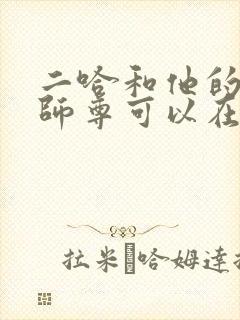 二哈和他的
師尊可以在
拉米 哈姆達